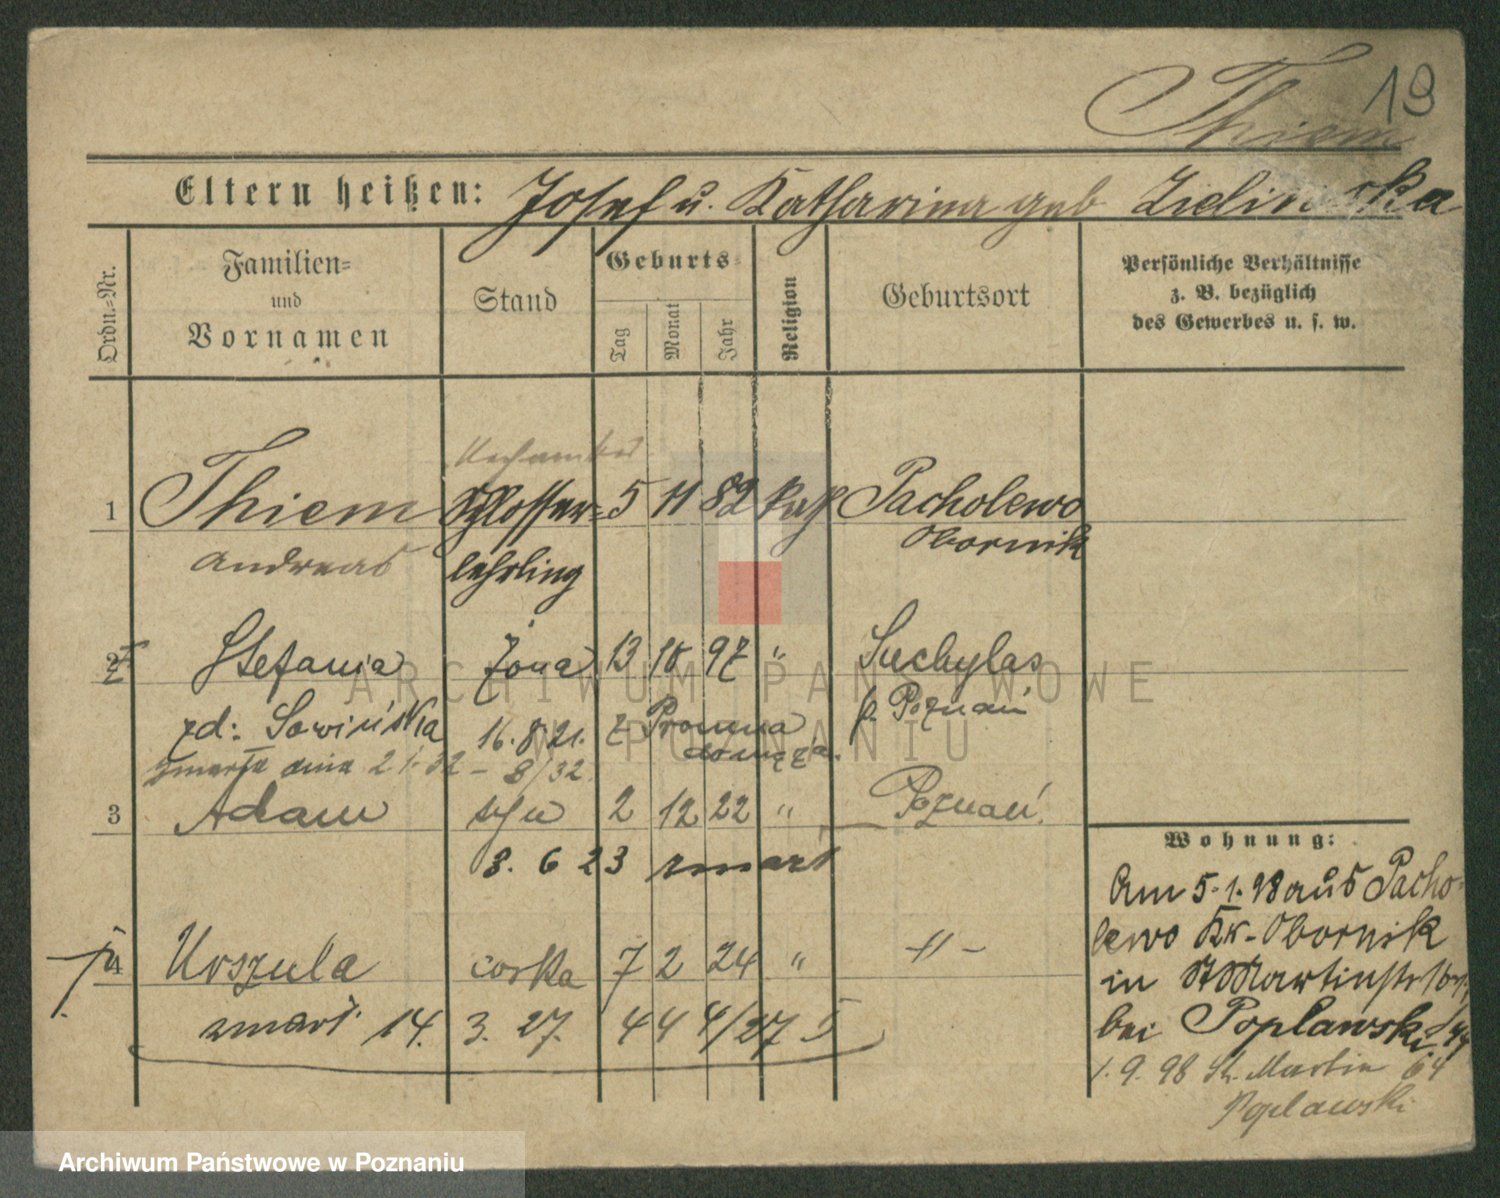 19
Thiem
Eltern heißen: Josef u. Katharina geb Zielinska
Ordn.-Nr.
Familien- und Vornamen
Stand
Geburts-
Tag
Monat
Jahr
Religion
Geburtsort
Persönliche Verhältnisse
z. B. bezüglich
des Gewerbes u. s. w.
1 Thiem Schlosser- 5 11 82 kath Pacholewo
Obornik
Andreas lehrling
2 Stefania żona 13 10 97 " Suchylas
zd: Sowińska 16.8.21. z Pronina p. Poznań
domęża.
zmarła dnia 2 1. 32 - 8/32
3 Adam syn 2 12 22 " Poznań.
8. 6 23 zmarł
4 Urszula corka 7 2 24 " -"-
zmarł 14. 3. 27. 444/27 5
Wohnung:
Am 5.1.98 aus Pacho-
lewo Kr. Obornik
in St Martinstr
bei Poplawski
1.9.98 St. Martin 64
Poplawski
ARCHIWUM PAŃSTWOWE
W POZNANIU
Archiwum Państwowe w Poznaniu